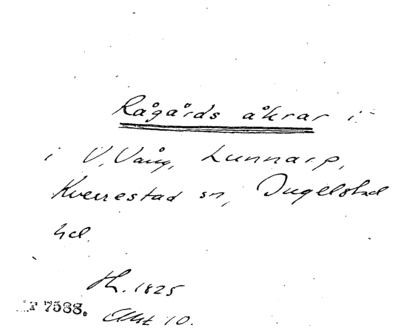 Rågårds åkrar i
i V. Vång, Lunnarp,
Kverrestad sn, Ingelstad
hd.
H. 1825
7588.
Akt 10.